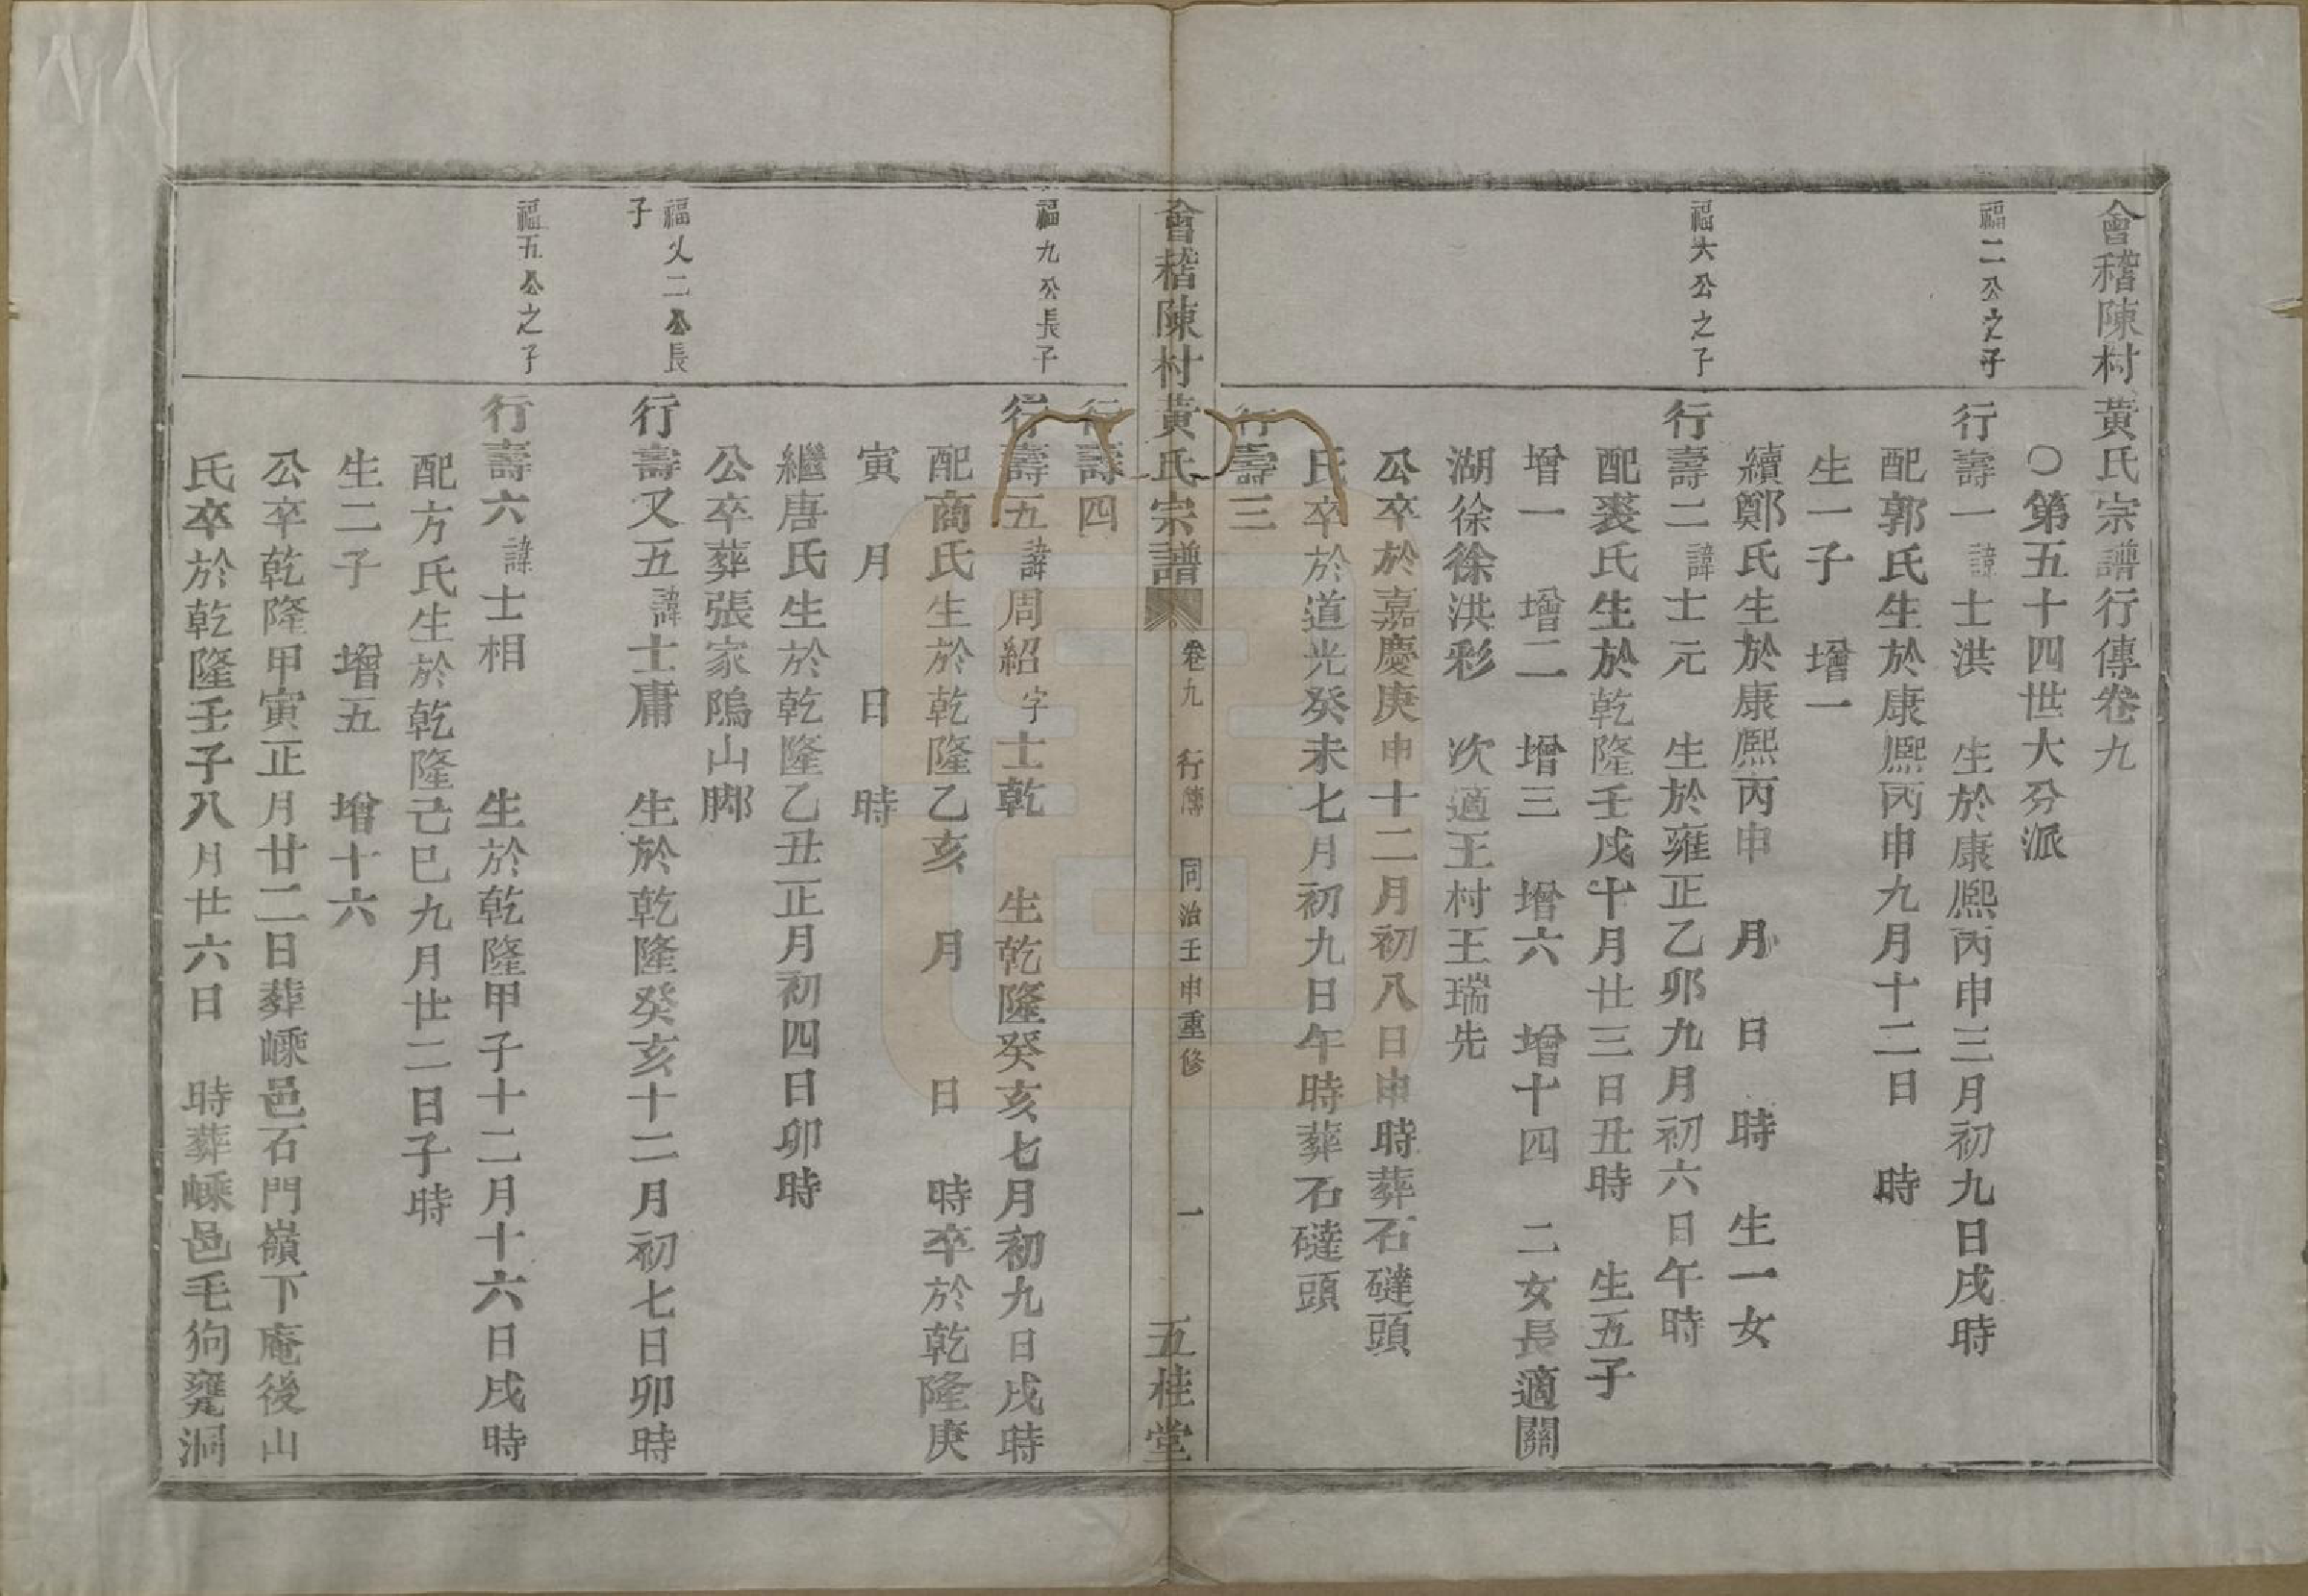 會稽陳村黃氏宗譜行傳卷九
○第五十四世大分派
福二公之子
行壽一諱士洪 生於康熙丙申三月初九日戌時
配郭氏生於康熙丙申九月十二日 時
生一子 增一
續鄭氏生於康熙丙申 月 日 時 生一女
福大公之子
行壽二諱士元 生於雍正乙卯九月初六日午時
配裘氏生於乾隆壬戌十月廿三日丑時 生五子
增一 增二 增三 增六 增十四 二女長適關
湖徐徐洪彩 次適王村王瑞先
公卒於嘉慶庚申十二月初八日申時葬石磀頭
氏卒於道光癸未七月初九日午時葬石磀頭
行壽三
會稽陳村黃氏宗譜 卷九 行傳 同治壬申重修 一 五桂堂
行壽四
福九公長子
行壽五諱周紹字士乾 生乾隆癸亥七月初九日戌時
配商氏生於乾隆乙亥 月 日 時卒於乾隆庚
寅 月 日 時
繼唐氏生於乾隆乙丑正月初四日卯時
公卒葬張家隖山腳
福乂二公長
子
行壽又五諱士庸 生於乾隆癸亥十二月初七日卯時
福五公之子
行壽六諱士相 生於乾隆甲子十二月十六日戌時
配方氏生於乾隆己巳九月廿二日子時
生二子 增五 增十六
公卒乾隆甲寅正月廿二日葬嵊邑石門嶺下庵後山
氏卒於乾隆壬子八月廿六日 時葬嵊邑毛狗甏洞